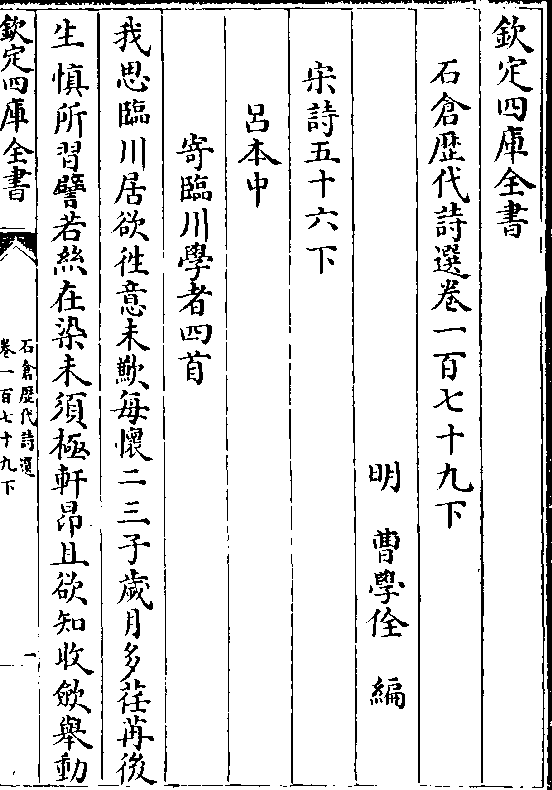 欽定四庫全書
石倉歴代詩選卷一百七十九下
明 曹學佺 編
宋詩五十六下
呂本中
寄臨川學者四首
我思臨川居欲徃意未歉每懷二三子歲月多荏苒後
生慎所習譬若絲在染未須極軒昂且欲知收斂舉動
欽定四庫全書
石倉歴代詩選
卷一百七十九下
一